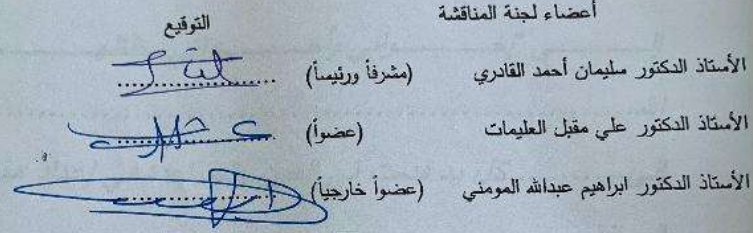 أعضاء لجنة المناقشة التوقيع
الأستاذ الدكتور سليمان أحمد القادري (مشرفاً ورئيساً) ....................
الأستاذ الدكتور علي مقبل العليمات (عضواً) ....................
الأستاذ الدكتور ابراهيم عبدالله المومني (عضواً خارجياً) ....................